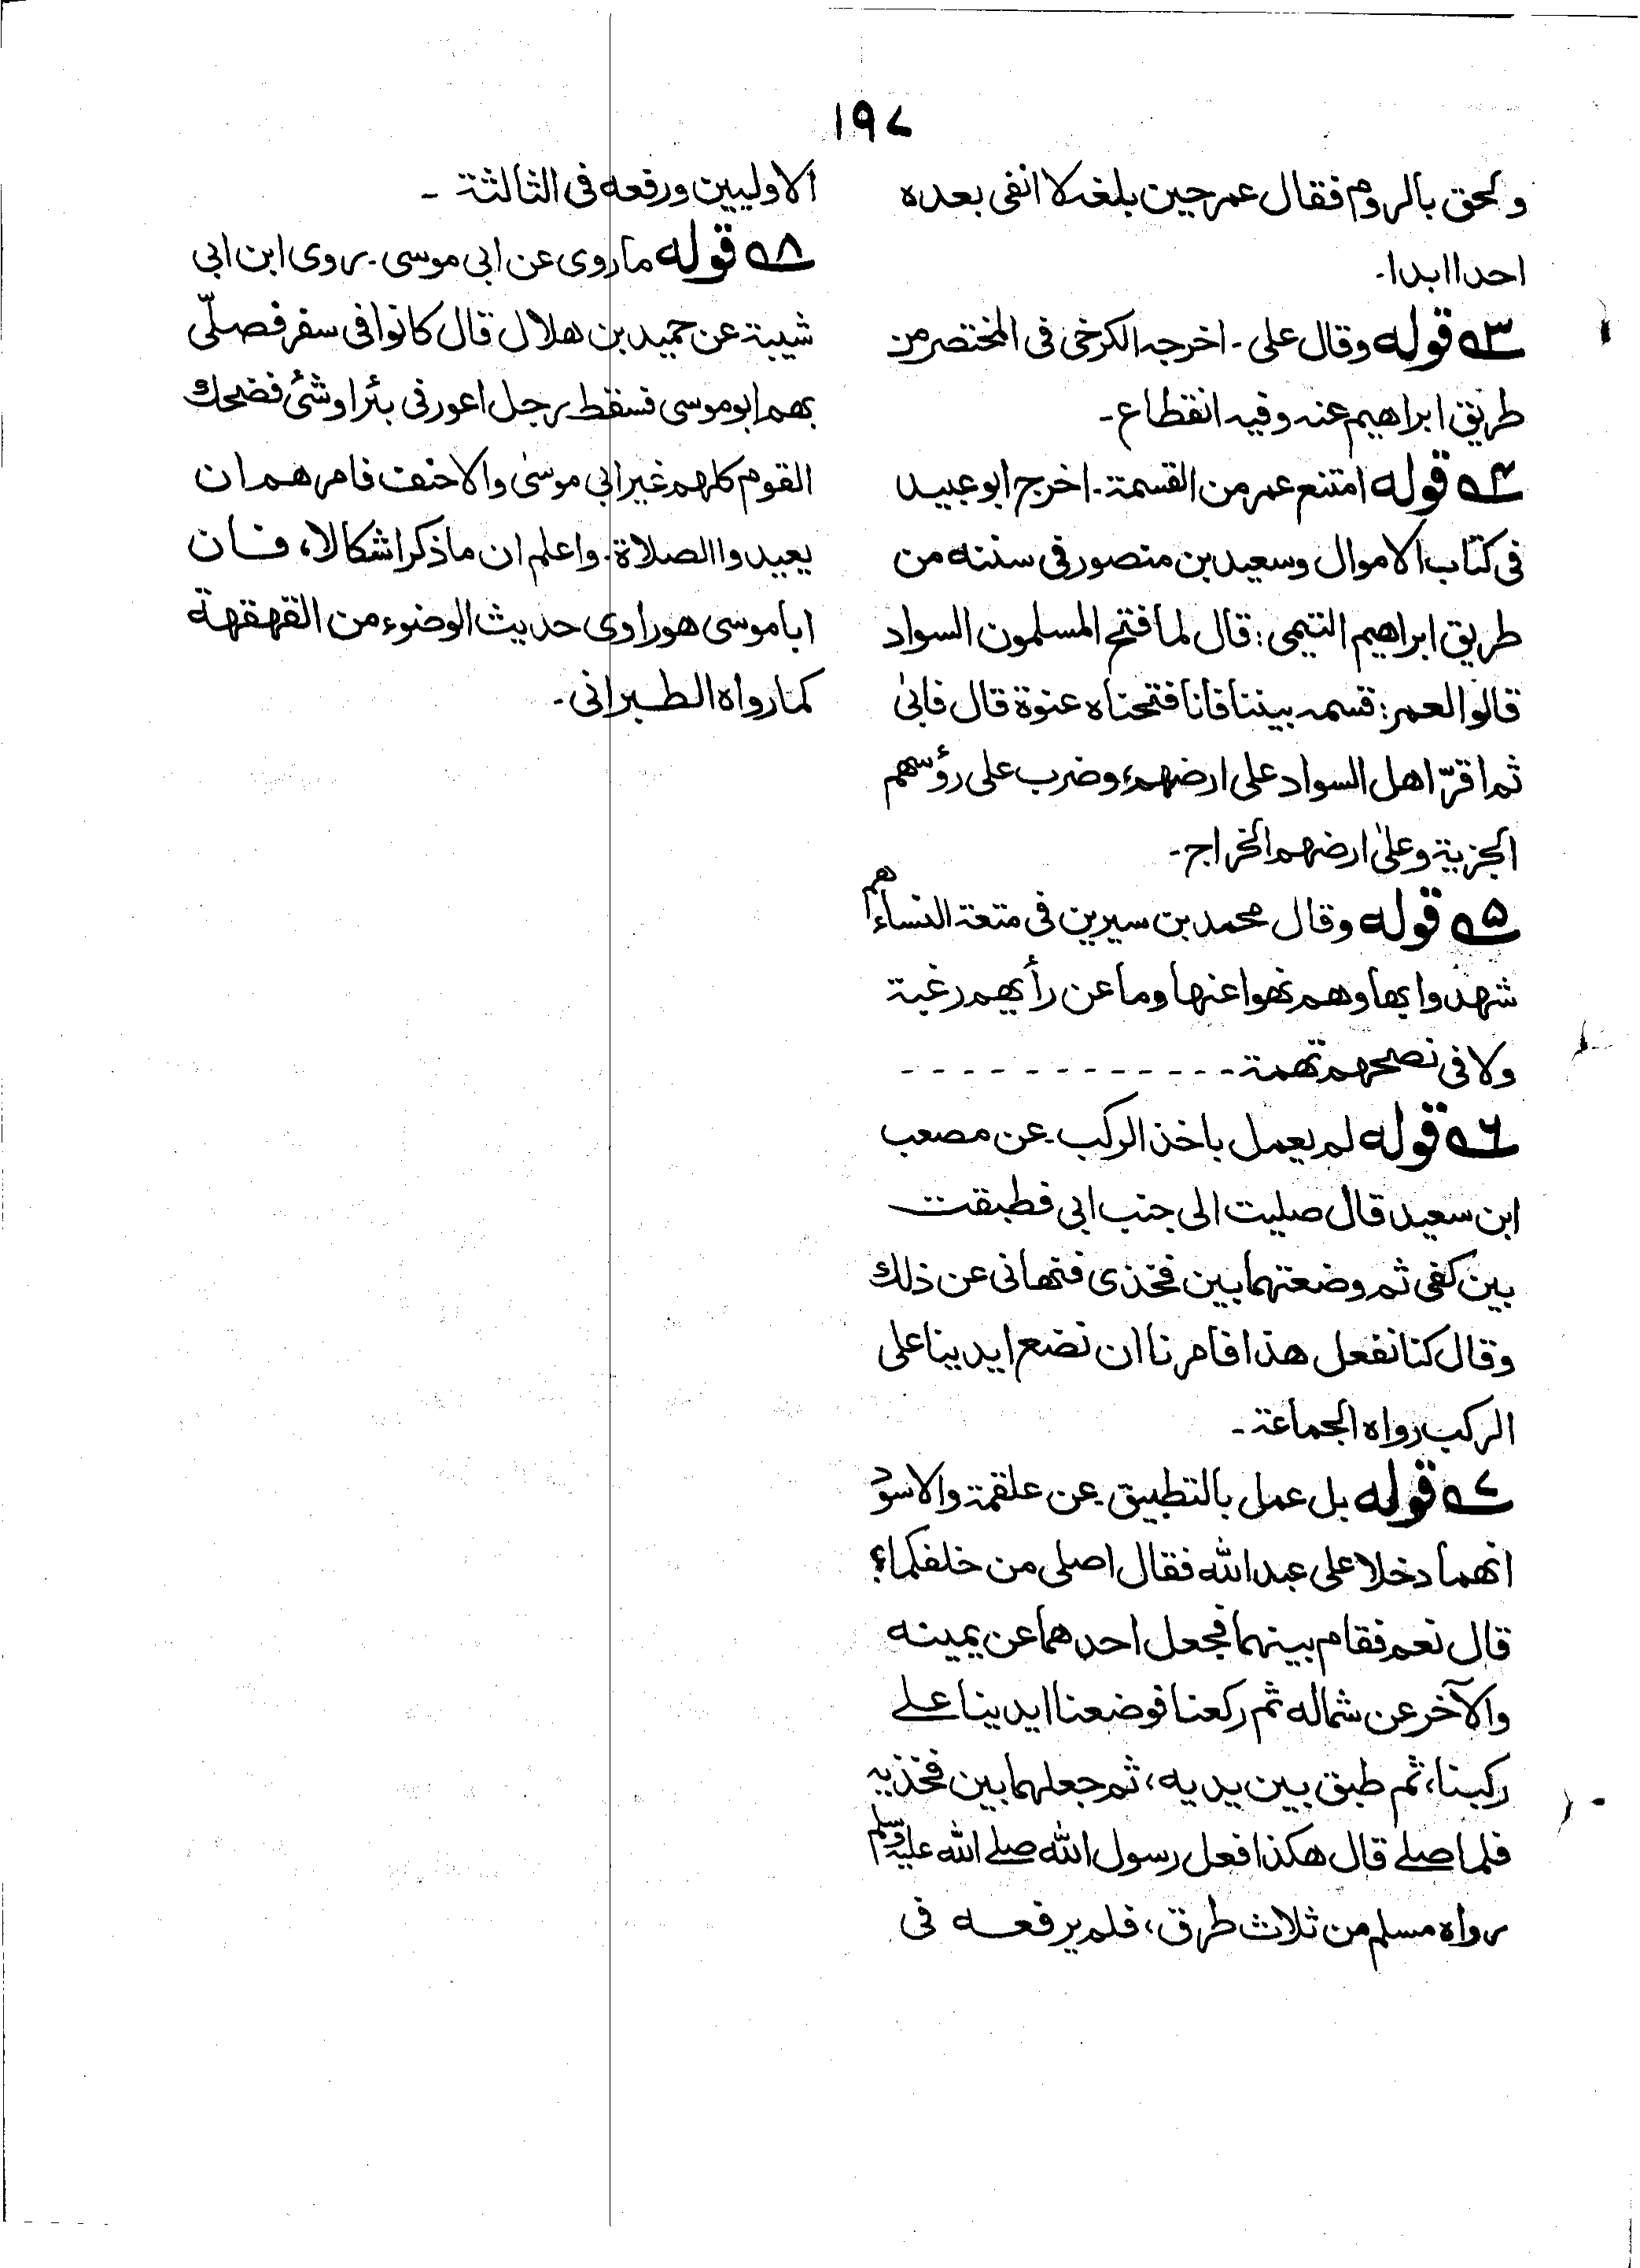 ۱۹۷
ولحق بالروم فقال عمر حين بلغه لا انفى بعده
احدا ابدا۔
۳ه قوله وقال على ۔ اخرجه الكرخى فى المختصر من
طريق ابراهيم عنه وفيه انقطاع۔
۴ه قوله امتنع عمر من القسمة۔ اخرج ابو عبيد
فى كتاب الاموال وسعيد بن منصور فى سننه من
طريق ابراهيم التيمى: قال لما فتح المسلمون السواد
قالوا لعمر: قسمه بيننا فانا فتحناه عنوة قال فابىٰ
ثم اقرّ اهل السواد على ارضهم، وضرب على رؤسهم
الجزية وعلىٰ ارضهم الخراج۔
۵ه قوله وقال محمد بن سيرين فى متعة النساء هم
شهدوا بها وهم نهوا عنها وما عن رأيهم رغبة
ولا فى نصحهم تهمة ۔ - - - - - - - - - - -
۶ه قوله لم يعمل باخذ الركب۔ عن مصعب
ابن سعيد قال صليت الى جنب ابى فطبقت
بين كفى ثم وضعتهما بين فخذى فنهانى عن ذلك
وقال كنا نفعل هذا فامرنا ان نضع ايدينا على
الركب رواه الجماعة۔
۷ه قوله بل عمل بالتطبيق۔ عن علقمة والاسود
انهما دخلا على عبد الله فقال اصلى من خلفكما؟
قال نعم فقام بينهما فجعل احدهما عن يمينه
والآخر عن شماله ثم ركعنا فوضعنا ايدينا علے
ركبنا، ثم طبق بين يديه، ثم جعلهما بين فخذيه
فلما صلے قال هكذا فعل رسول الله صلے الله عليه وسلم
رواه مسلم من ثلاث طرق، فلم يرفعه فى
الاوليين ورفعه فى الثالثة ۔
۸ه قوله ما روى عن ابى موسى۔ روى ابن ابى
شيبة عن حميد بن هلال قال كانوا فى سفر فصلّى
بهم ابو موسى فسقط رجل اعور فى بئر او شئ فضحك
القوم كلهم غير ابى موسىٰ والاحنف فامرهم ان
يعيدوا الصلاة۔ واعلم ان ما ذكر اشكالا، فان
ابا موسى هو راوى حديث الوضوء من القهقهة
كما رواه الطبرانى۔